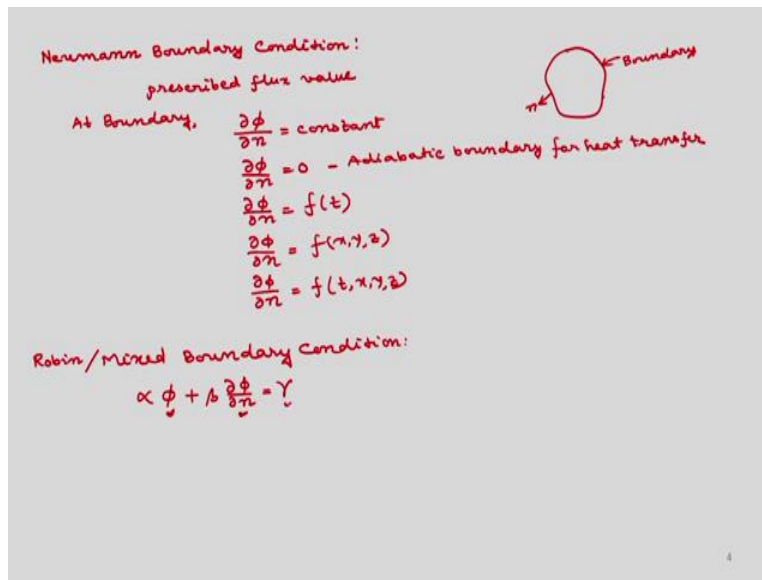 Neumann Boundary Condition:
prescribed flux value
Boundary
n
At Boundary, ∂φ/∂n = constant
∂φ/∂n = 0 - Adiabatic boundary for heat transfer
∂φ/∂n = f(t)
∂φ/∂n = f(x,y,z)
∂φ/∂n = f(t,x,y,z)
Robin/Mixed Boundary Condition:
α φ + β ∂φ/∂n = γ
4